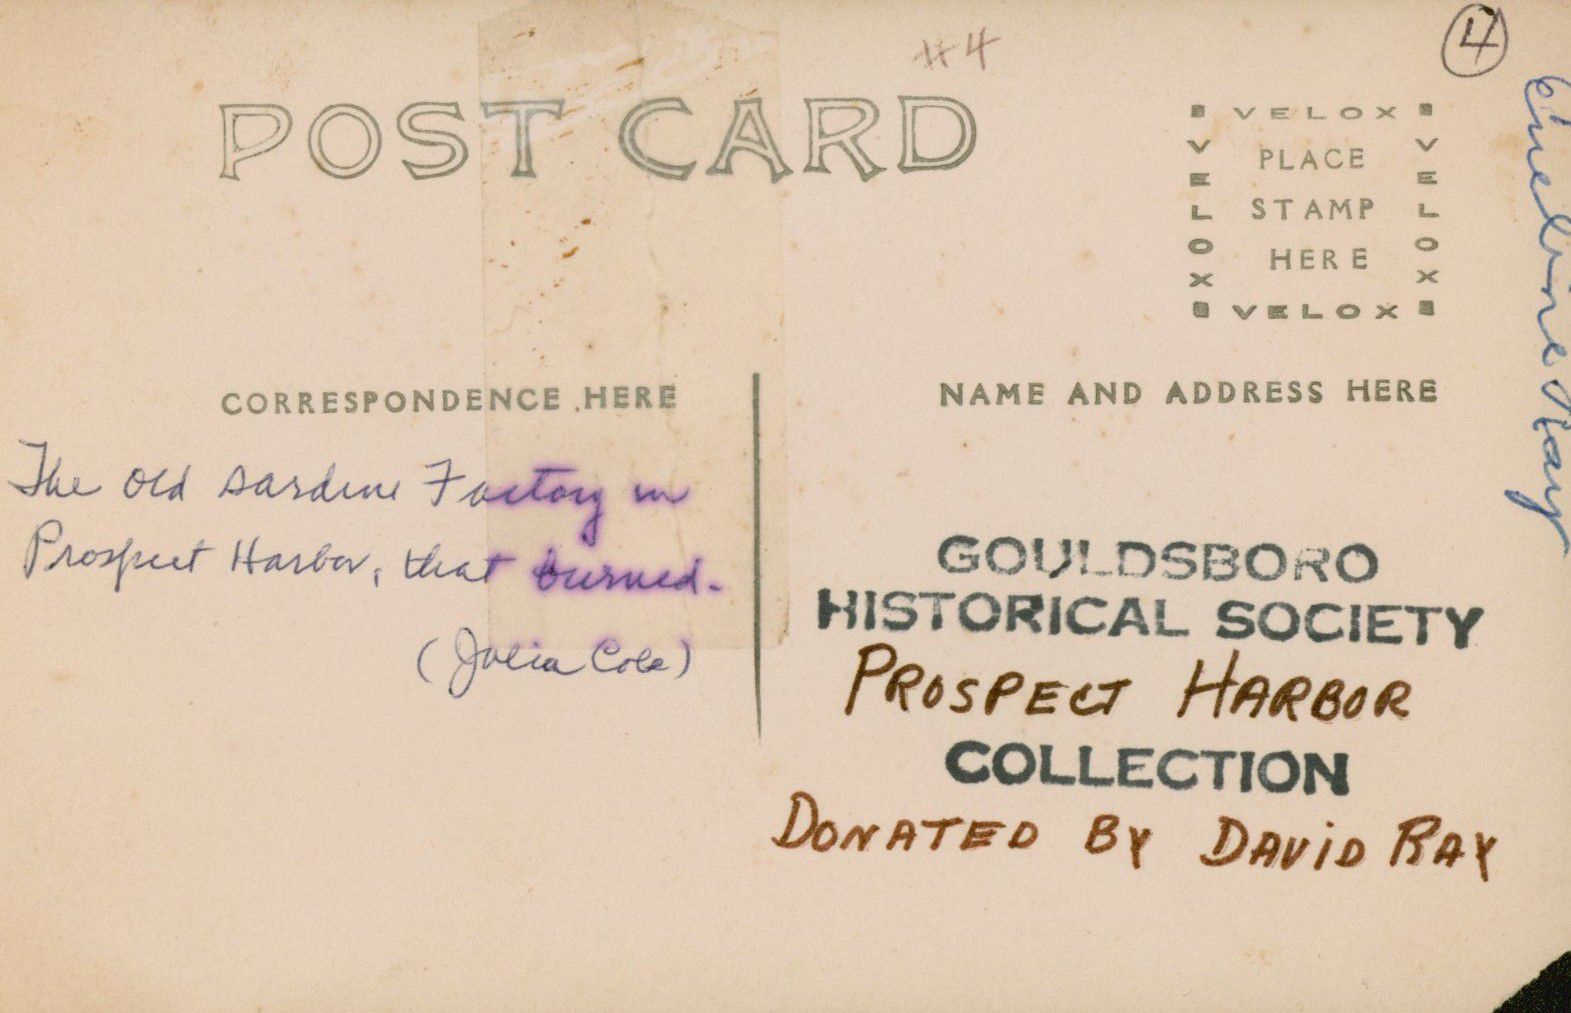 #4
4
POST CARD
VELOX
VELOX
PLACE
STAMP
HERE
VELOX
VELOX
CORRESPONDENCE HERE
NAME AND ADDRESS HERE
The old sardine Factory in
Prospect Harbor, that burned.
(Julia Cole)
GOULDSBORO
HISTORICAL SOCIETY
PROSPECT HARBOR
COLLECTION
DONATED BY DAVID RAY
Ray